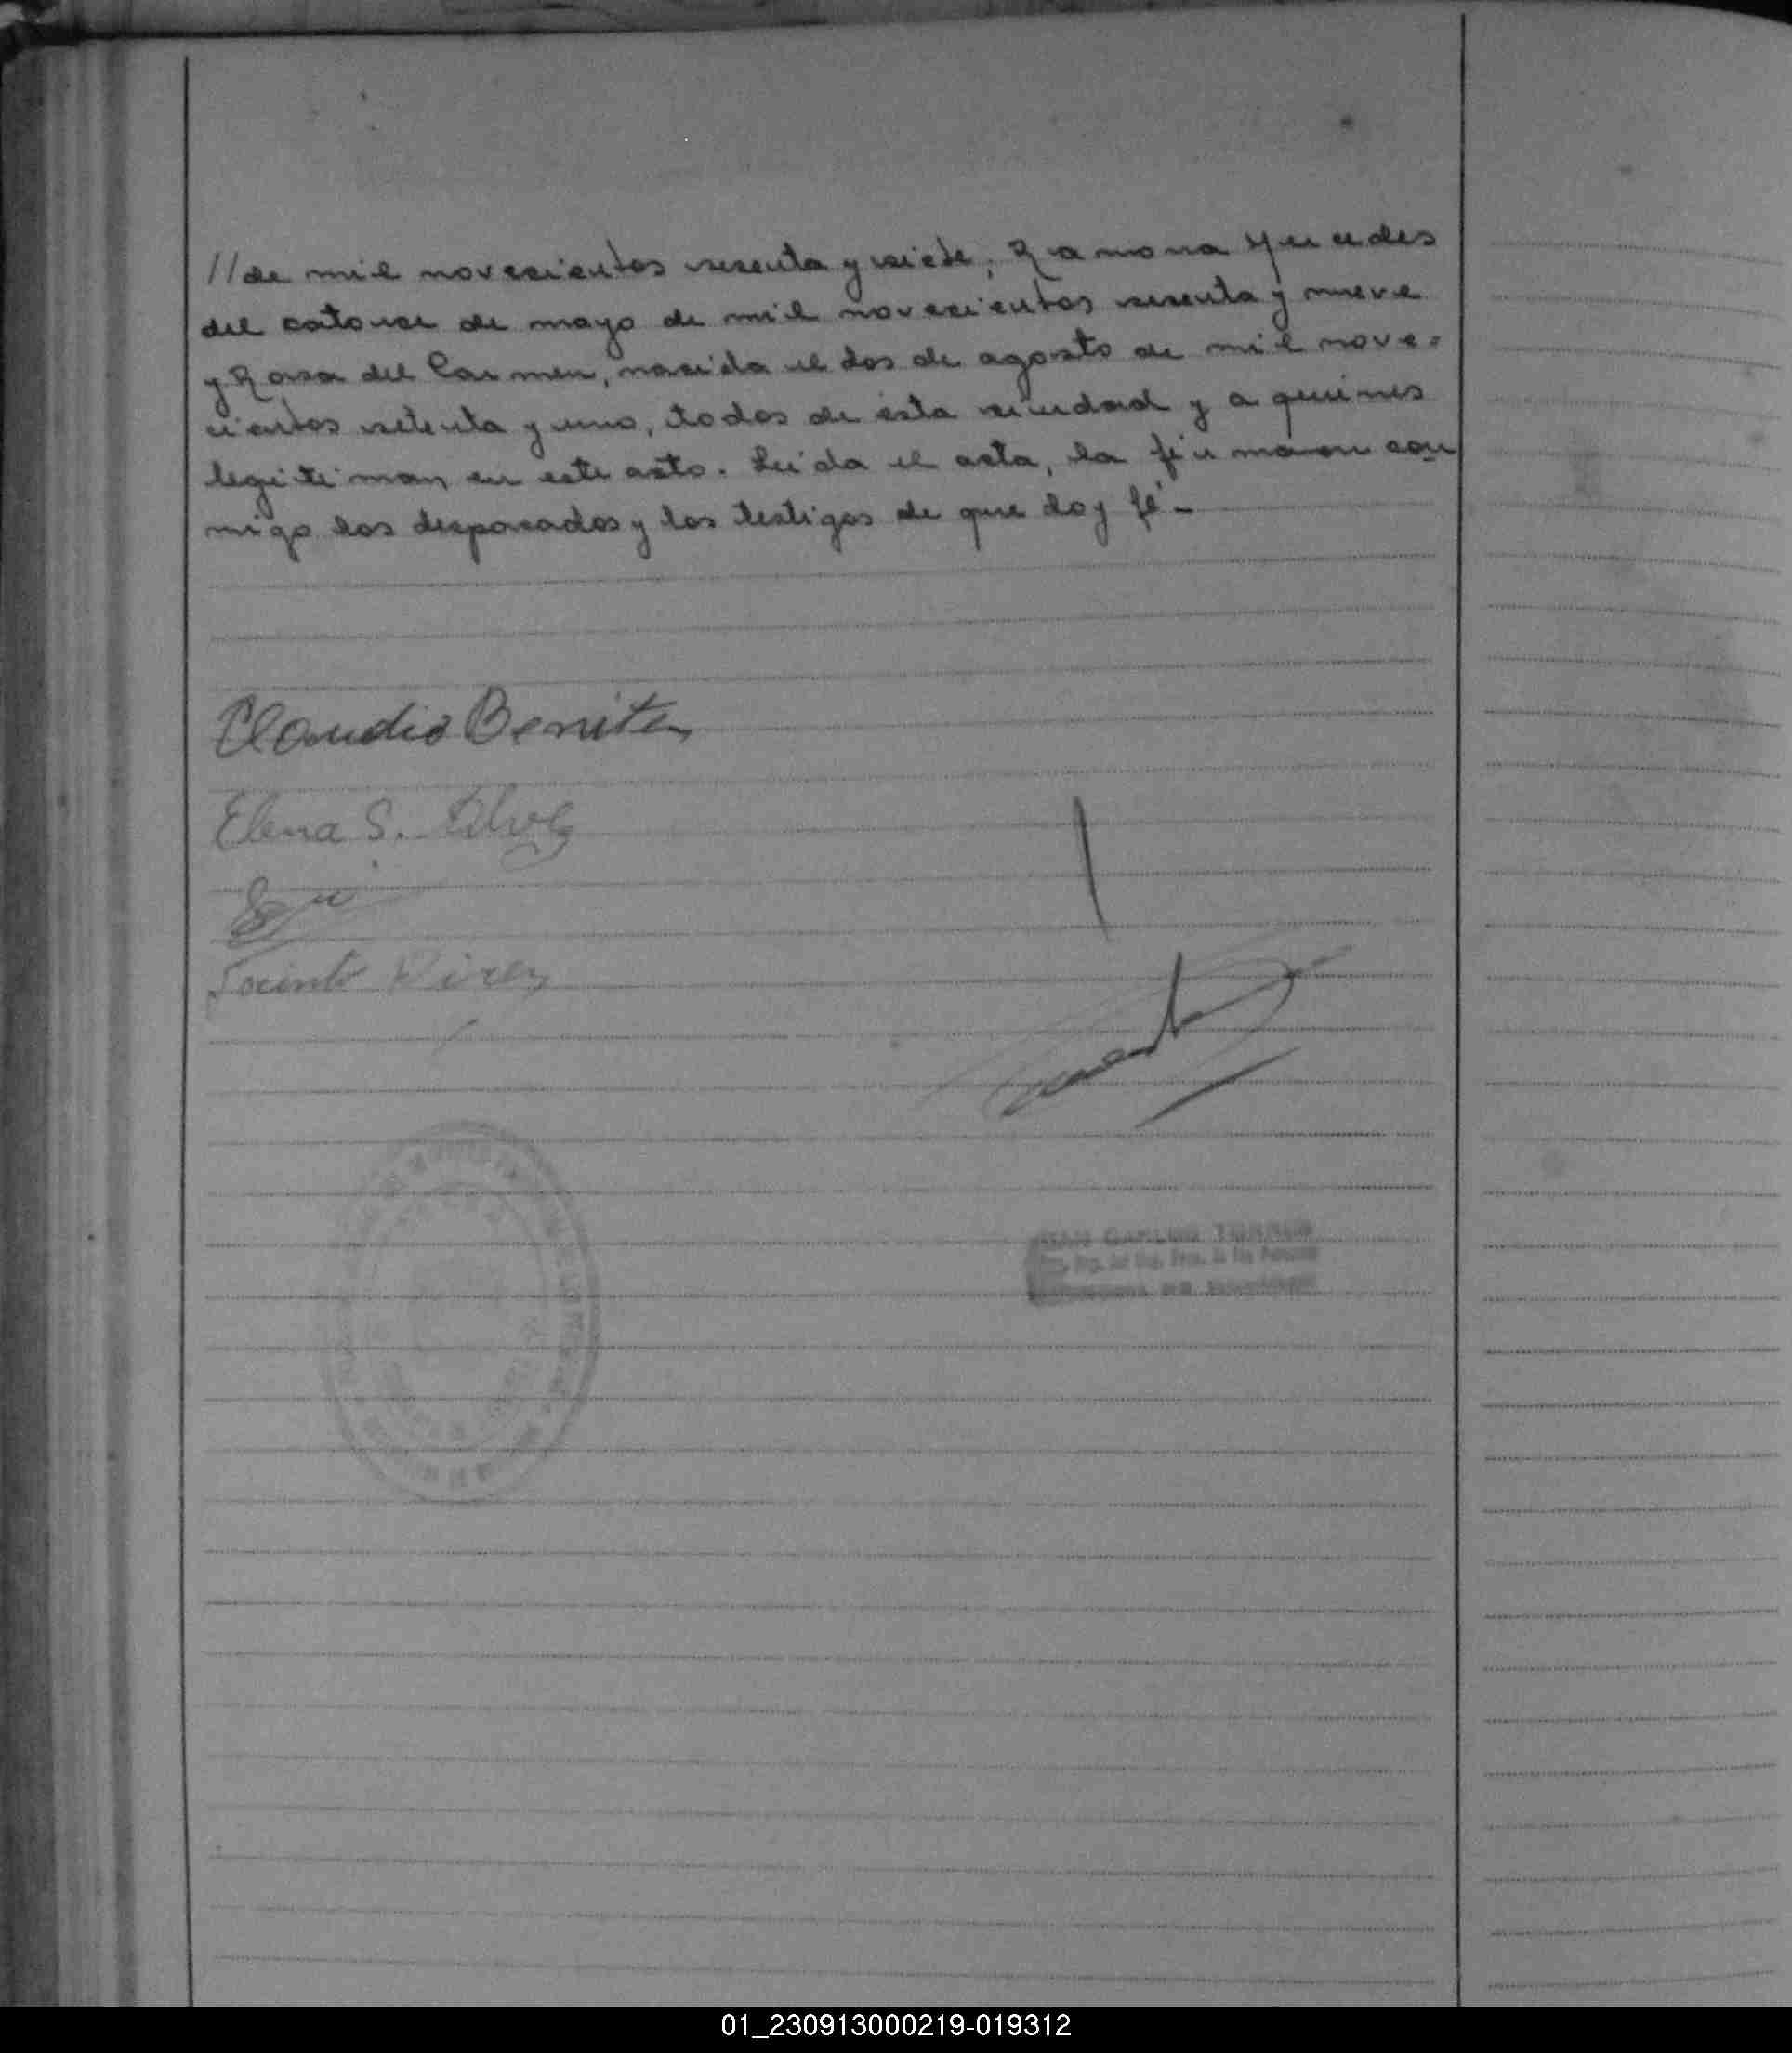 //de mil novecientos sesenta y siete; Ramona Mercedes
del catorce de mayo de mil novecientos sesenta y nueve
y Rosa del Carmen, nacida el dos de agosto de mil nove-
cientos setenta y uno, todos de esta ciudad y a quienes
legitiman en este acto. Leída el acta, la firmaron con
migo los desposados y los testigos de que doy fé-
Claudio Benitez
Elena S.
Jacinto
JUAN CARLOS TORRES
01_230913000219-019312